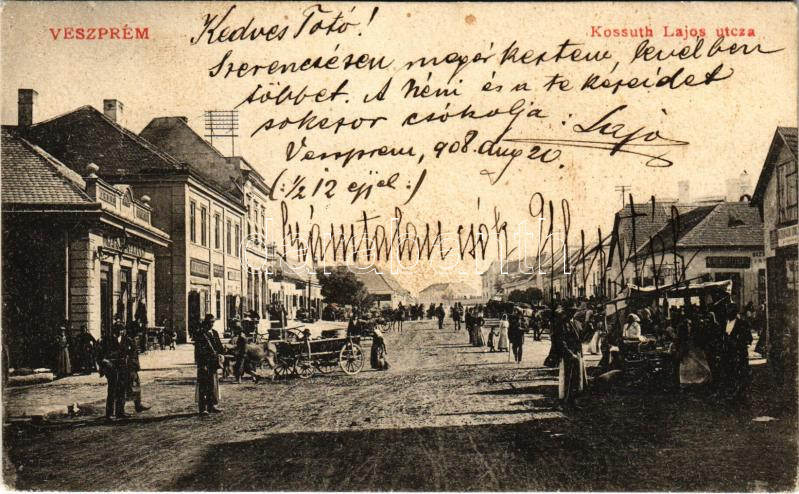 VESZPRÉM
Kossuth Lajos utcza
Kedves Totó!
Szerencsésen megérkeztem, levélben
többet. A Néni és a te kezeidet
sokszor csókolja: Lajó
Veszprém, 908. aug 20.
(: ½ 12 éjjel :)
Számtalan csók
darabanth.com